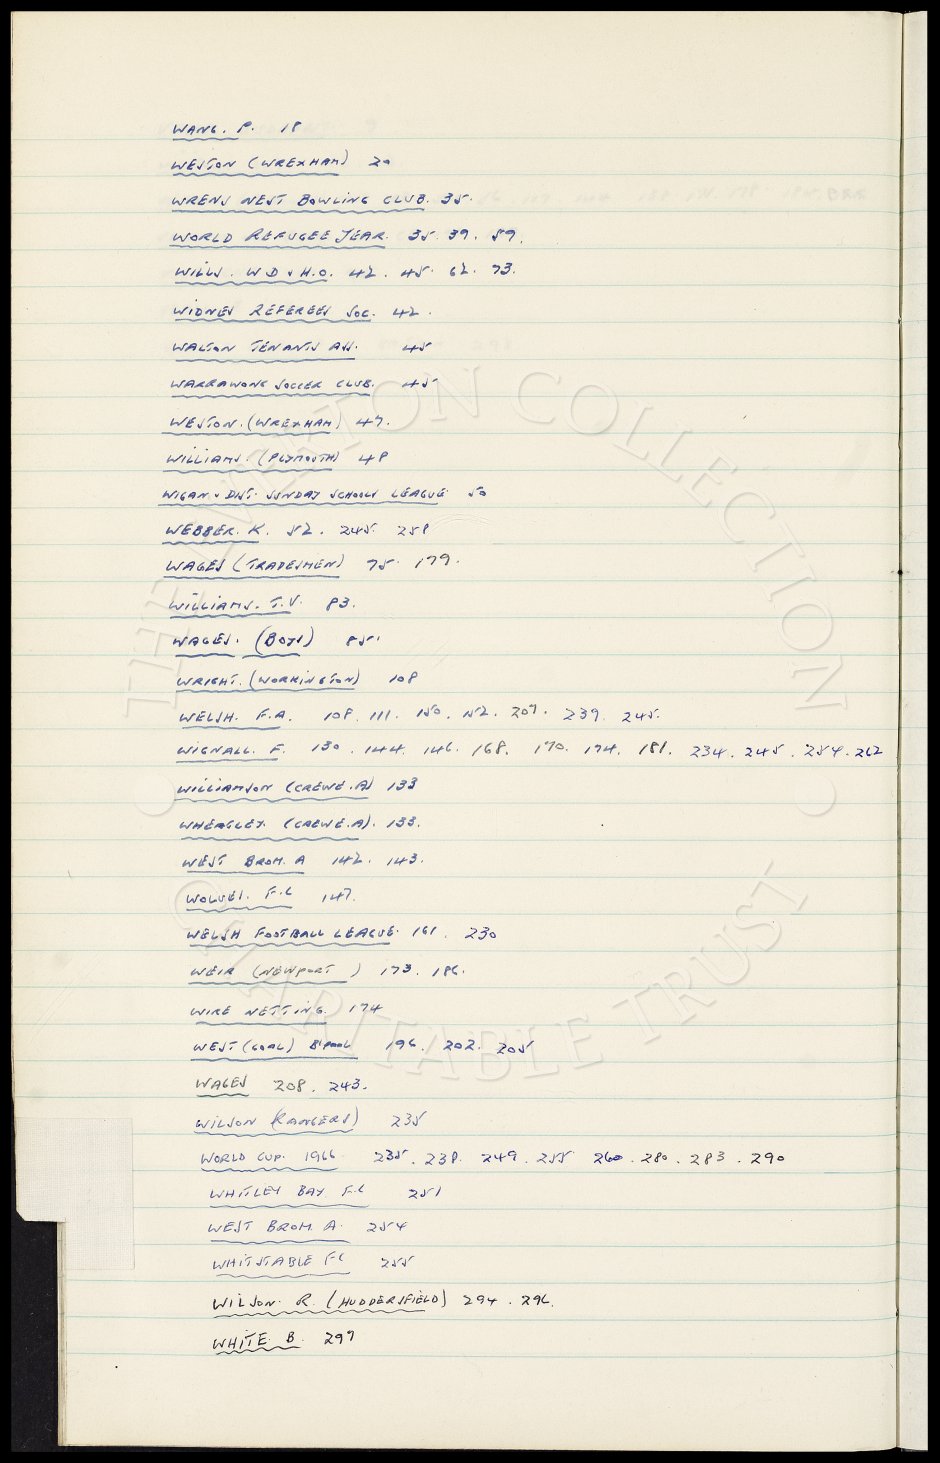 WANG. P. 18
WESTON (WREXHAM) 20
WRENS NEST BOWLING CLUB. 35.
WORLD REFUGEE YEAR. 35. 39. 59.
WILLS. W D & H.O. 42. 45. 62. 73.
WIDNES REFEREES SOC. 42.
WALTON TENANTS ASS. 45
WARRAWONG SOCCER CLUB. 45
WESTON. (WREXHAM) 47.
WILLIAMS. (PLYMOUTH) 48
WIGAN & DIST. SUNDAY SCHOOLS LEAGUE. 50
WEBBER. K. 52. 245. 258
WAGES (TRADESMEN) 75. 179.
WILLIAMS. T.V. 83.
WAGES. (BOYS) 85.
WRIGHT. (WORKINGTON) 108
WELSH. F.A. 108. 111. 150. 152. 207. 239. 245.
WIGNALL. F. 130. 144. 146. 168. 170. 174. 181. 234. 245. 254. 262
WILLIAMSON (CREWE.A) 133
WHEATLEY. (CREWE.A). 133.
WEST BROM. A 142. 143.
WOLVES. F.C 147.
WELSH FOOTBALL LEAGUE. 161. 230
WEIR (NEWPORT) 173. 186.
WIRE NETTING. 174
WEST (GOAL) B'POOL 196. 202. 205
WAGES 208. 243.
WILSON (RANGERS) 235
WORLD CUP. 1966 235. 238. 249. 255 260. 280. 283. 290
WHITLEY BAY F.C 251
WEST BROM A. 254
WHITSTABLE F.C 255
WILSON. R. (HUDDERSFIELD) 294. 296.
WHITE. B. 299
THE WESTON COLLECTION
CHARITABLE TRUST